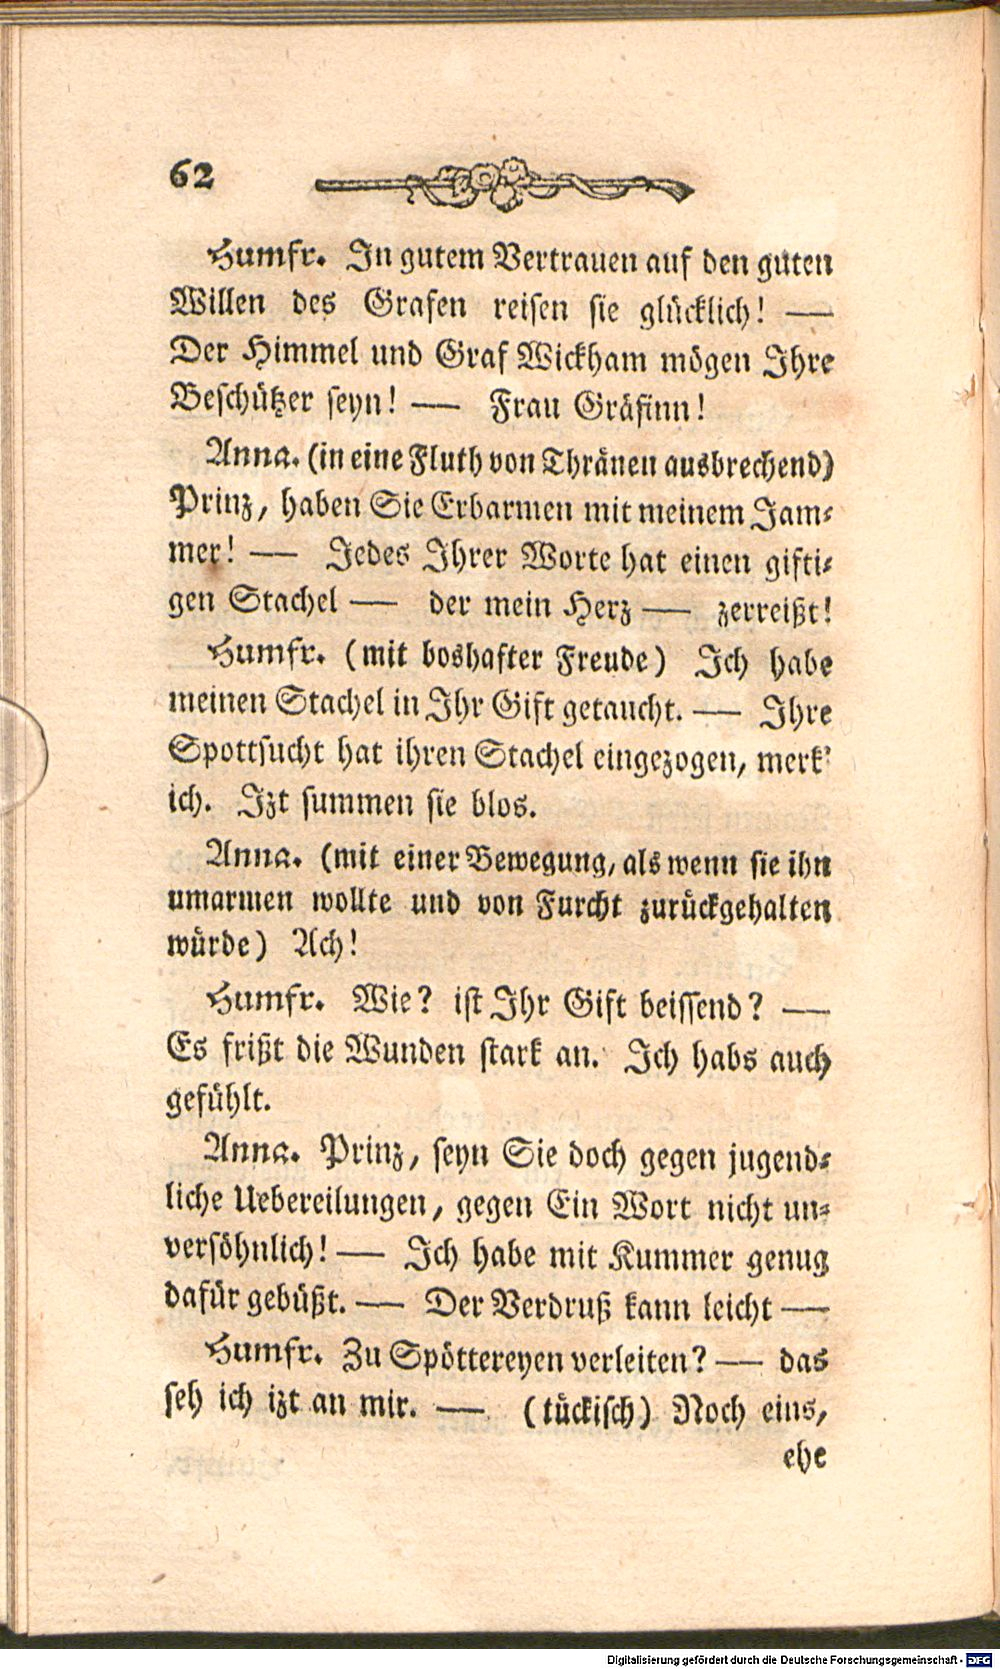 62
Humfr. In gutem Vertrauen auf den guten
Willen des Grafen reisen sie glücklich! —
Der Himmel und Graf Wickham mögen Ihre
Beschützer seyn! — Frau Gräfinn!
Anna. (in eine Fluth von Thränen ausbrechend)
Prinz, haben Sie Erbarmen mit meinem Jam-
mer! — Jedes Ihrer Worte hat einen gifti-
gen Stachel — der mein Herz — zerreißt!
Humfr. (mit boshafter Freude) Ich habe
meinen Stachel in Ihr Gift getaucht. — Ihre
Spottsucht hat ihren Stachel eingezogen, merk'
ich. Izt summen sie blos.
Anna. (mit einer Bewegung, als wenn sie ihn
umarmen wollte und von Furcht zurückgehalten
würde) Ach!
Humfr. Wie? ist Ihr Gift beissend? —
Es frißt die Wunden stark an. Ich habs auch
gefühlt.
Anna. Prinz, seyn Sie doch gegen jugend-
liche Uebereilungen, gegen Ein Wort nicht un-
versöhnlich! — Ich habe mit Kummer genug
dafür gebüßt. — Der Verdruß kann leicht —
Humfr. Zu Spöttereyen verleiten? — das
seh ich izt an mir. — (tückisch) Noch eins,
ehe
Digitalisierung gefördert durch die Deutsche Forschungsgemeinschaft - DFG